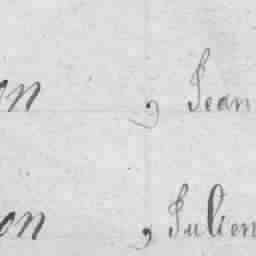 on, Jean
on, Julien